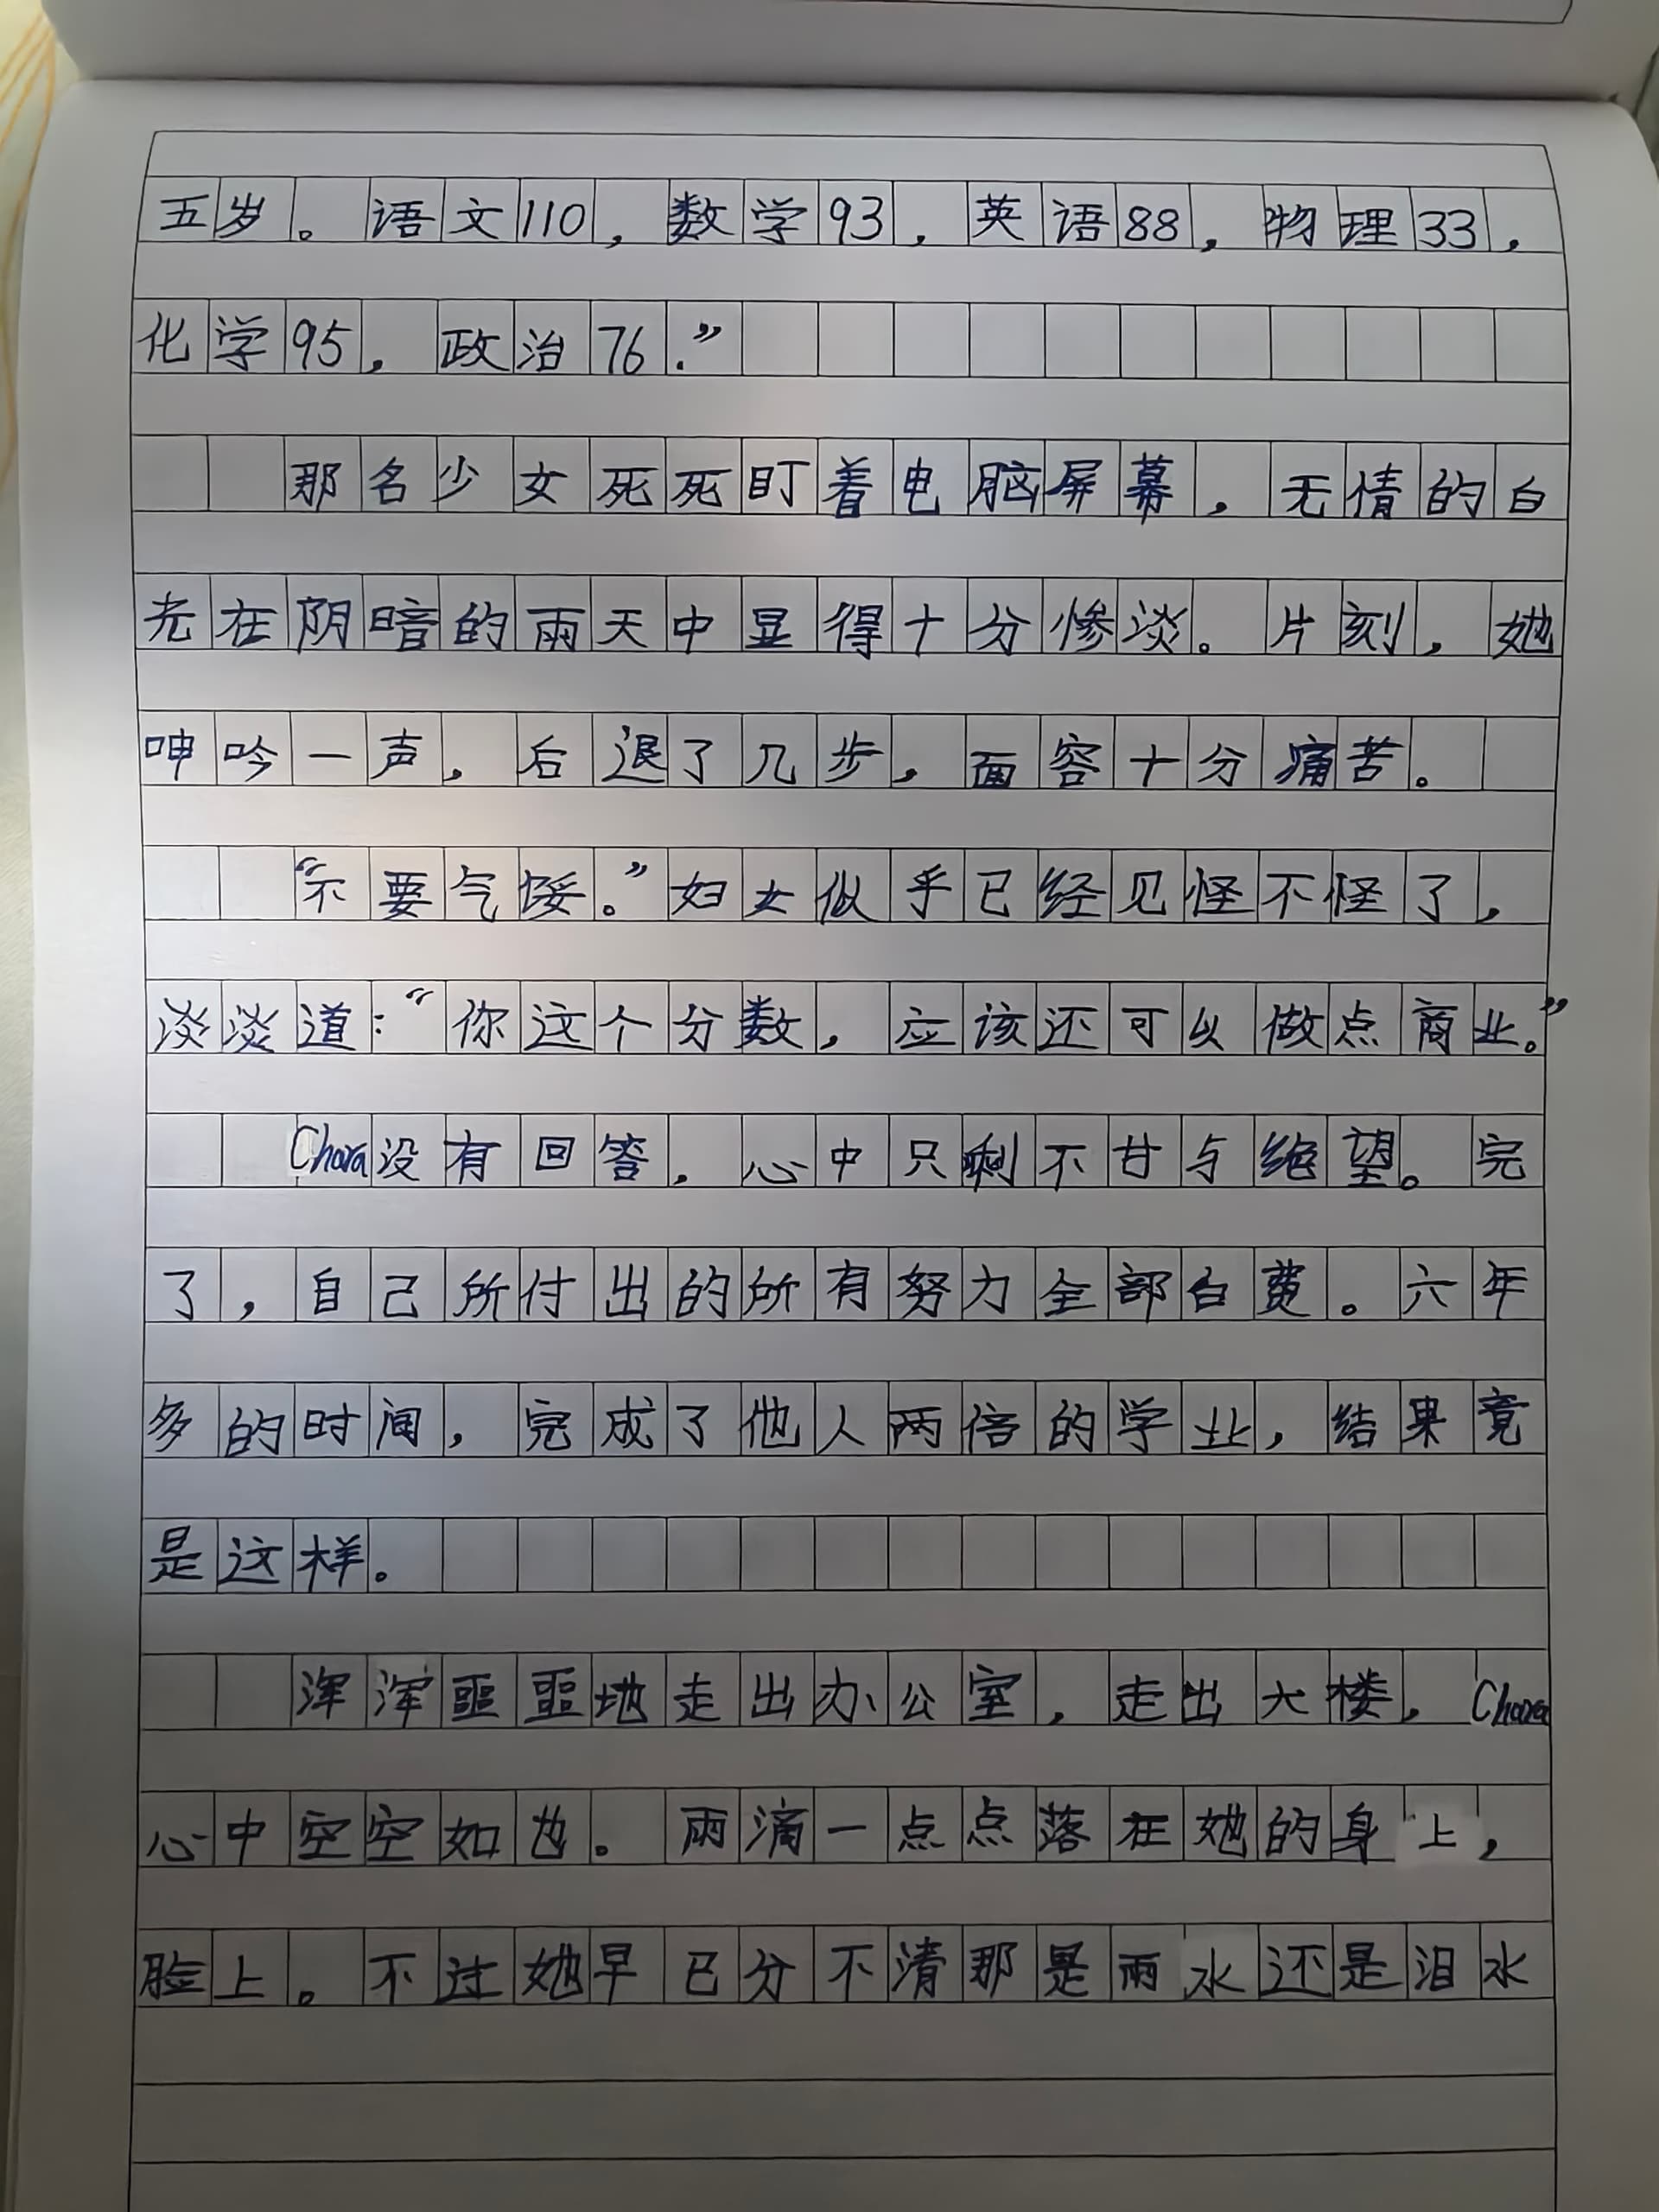 五岁。语文110，数学93，英语88，物理33，
化学95，政治76.”
那名少女死死盯着电脑屏幕，无情的白
光在阴暗的雨天中显得十分惨淡。片刻，她
呻吟一声，后退了几步，面容十分痛苦。
“不要气馁。”妇女似乎已经见怪不怪了，
淡淡道：“你这个分数，应该还可以做点商业。”
Chara没有回答，心中只剩不甘与绝望。完
了，自己所付出的所有努力全部白费。六年
多的时间，完成了他人两倍的学业，结果竟
是这样。
浑浑噩噩地走出办公室，走出大楼，Chara
心中空空如也。雨滴一点点落在她的身上，
脸上。不过她早已分不清那是雨水还是泪水